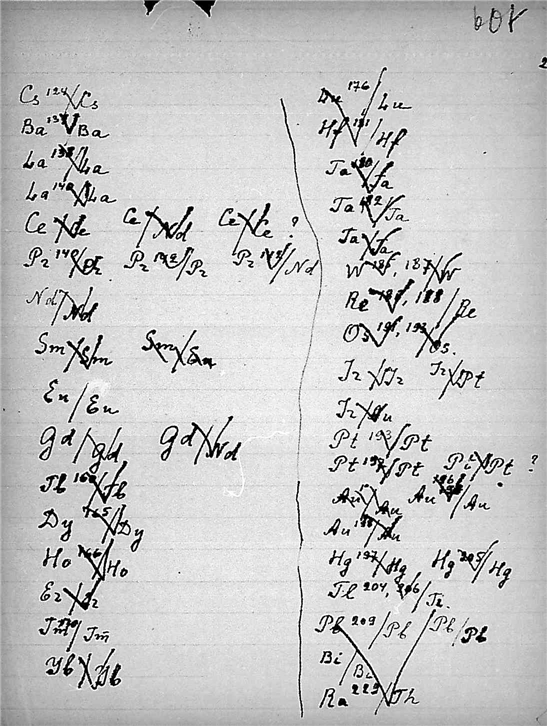 601
2
Cs 124/Cs
Ba 131/Ba
La 138/La
La 140/La
Ce/Ce Ce/Nd Ce/Ce ?
Pr 140/Pr Pr 142/Pr Pr 142/Nd
Nd/Nd
Sm/Sm Sm/Eu
Eu/Eu
Gd/Gd Gd/Nd
Tb 160/Tb
Dy 165/Dy
Ho 166/Ho
Er/Er
Tm 170/Tm
Yb/Yb
Lu 176/Lu
Hf 181/Hf
Ta 180/Ta
Ta 182/Ta
Ta/Ta
W 185, 187/W
Re 186, 188/Re
Os 191, 193/Os.
Ir/Ir Ir/Pt
Ir/Au
Pt 193/Pt
Pt 197/Pt Pt/Pt ?
Au/Au Au 196/Au
Au 198/Au
Hg 197/Hg Hg 205/Hg
Tl 204, 206/Tl.
Pb 209/Pb /Pb/Pb
Bi/Bi
Ra 223/Th